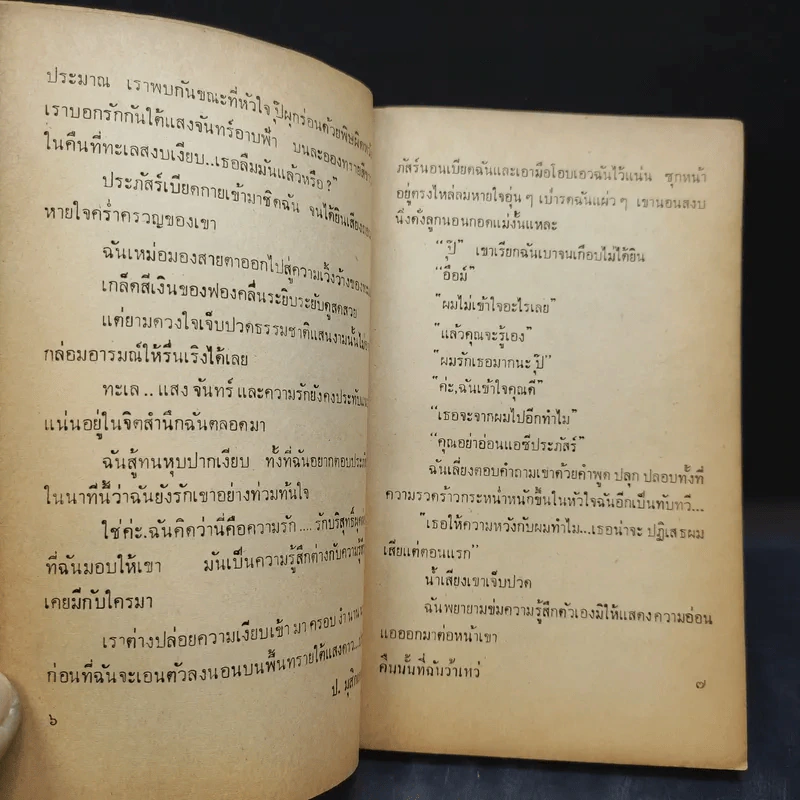 ประมาณ เราพบกันขณะที่หัวใจปุ๊ผุกร่อนด้วยพิษผิดหวัง
เราบอกรักกันใต้แสงจันทร์อาบฟ้า บนละอองทราย
ในคืนที่ทะเลสงบเงียบ..เธอลืมมันแล้วหรือ?"
ประภัสร์เบียดกายเข้ามาชิดฉัน จนได้ยินเสียง
หายใจคร่ำครวญของเขา
ฉันเหม่อมองสายตาออกไปสู่ความเวิ้งว้างของ
เกล็ดสีเงินของฟองคลื่นระยิบระยับดูสดสวย
แต่ยามดวงใจเจ็บปวดธรรมชาติแสนงามนั้นไม่
กล่อมอารมณ์ให้รื่นเริงได้เลย
ทะเล .. แสง จันทร์ และความรักยังคงประทับ
แน่นอยู่ในจิตสำนึกฉันตลอดมา
ฉันสู้ทนหุบปากเงียบ ทั้งที่ฉันอยากตอบประภัสร์
ในนาทีนี้ว่าฉันยังรักเขาอย่างท่วมท้นใจ
ใช่ค่ะ.ฉันคิดว่านี่คือความรัก .... รักบริสุทธิ์ผุดผ่อง
ที่ฉันมอบให้เขา มันเป็นความรู้สึกต่างกับความรู้สึก
เคยมีกับใครมา
เราต่างปล่อยความเงียบเข้า มา ครอบ งำ นาน
ก่อนที่ฉันจะเอนตัวลงนอนบนพื้นทรายใต้แสงดาว..
ป. มุสิก
๖
ภัสร์นอนเบียดฉันและเอามือโอบเอวฉันไว้แน่น ซุกหน้า
อยู่ตรงไหล่ลมหายใจอุ่น ๆ เป่ารดฉันแผ่ว ๆ เขานอนสงบ
นิ่งดั่งลูกนอนกอดแม่งั้นแหละ
"ปุ๊" เขาเรียกฉันเบาจนเกือบไม่ได้ยิน
"อืือม์"
"ผมไม่เข้าใจอะไรเลย"
"แล้วคุณจะรู้เอง"
"ผมรักเธอมากนะ ปุ๊"
"ค่ะ,ฉันเข้าใจคุณดี"
"เธอจะจากผมไปอีกทำไม"
"คุณอย่าอ่อนแอซีประภัสร์"
ฉันเลี่ยงตอบคำถามเขาด้วยคำพูด ปลุก ปลอบทั้งที่
ความรวดร้าวกระหน่ำหนักขึ้นในหัวใจฉันอีกเป็นทับทวี...
"เธอให้ความหวังกับผมทำไม...เธอน่าจะ ปฏิเสธผม
เสียแต่ตอนแรก"
น้ำเสียงเขาเจ็บปวด
ฉันพยายามข่มความรู้สึกตัวเองมิให้แสดง ความอ่อน
แอออกมาต่อหน้าเขา
คืนนั้นที่ฉันว้าเหว่
๗